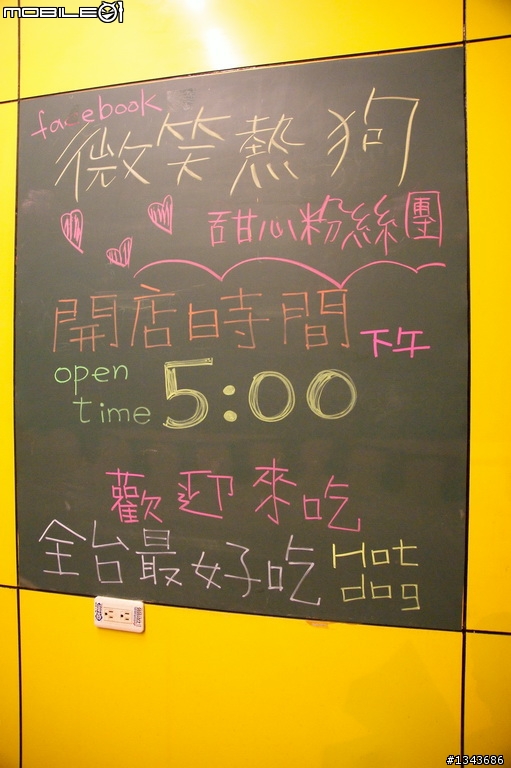 MOBILE01
facebook
微笑熱狗
甜心粉絲團
開店時間
下午
open
time
5:00
歡迎來吃
全台最好吃
Hot
dog
#1343686